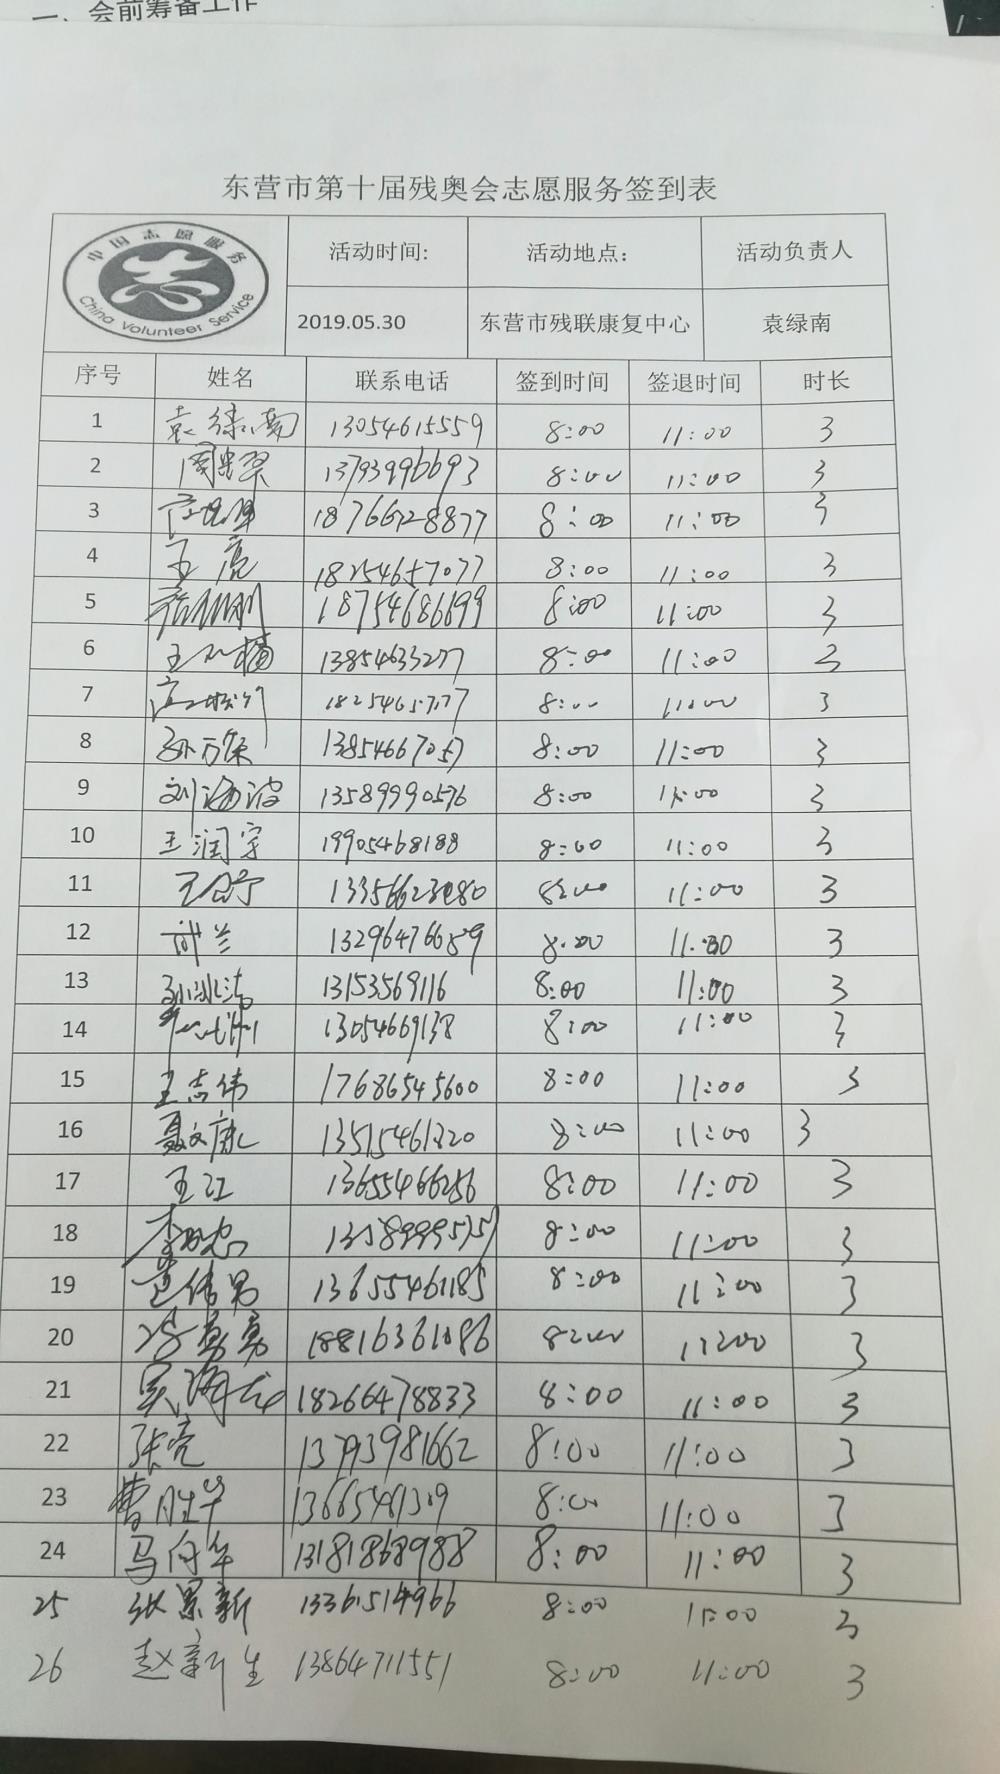 一、会前筹备工作
东营市第十届残奥会志愿服务签到表
中国志愿服务
China Volunteer Service
活动时间: 活动地点: 活动负责人
2019.05.30 东营市残联康复中心 袁绿南
序号 姓名 联系电话 签到时间 签退时间 时长
1 袁绿南 13054615559 8:00 11:00 3
2 13793996693 8:00 11:00 3
3 18766728877 8:00 11:00 3
4 王亮 18254657077 8:00 11:00 3
5 18754686699 8:00 11:00 3
6 13854633277 8:00 11:00 3
7 8:00 11:00 3
8 孙万保 13854667057 8:00 11:00 3
9 刘海波 13589990576 8:00 11:00 3
10 王润宇 19905468188 8:00 11:00 3
11 8:00 11:00 3
12 8:00 11:00 3
13 13153569116 8:00 11:00 3
14 13054669138 8:00 11:00 3
15 王志伟 17686545600 8:00 11:00 3
16 聂文康 13515461320 8:00 11:00 3
17 王江 13655466256 8:00 11:00 3
18 8:00 11:00 3
19 董伟男 13655461185 8:00 11:00 3
20 8:00 11:00 3
21 18266478833 8:00 11:00 3
22 张亮 13793981662 8:00 11:00 3
23 曹胜华 8:00 11:00 3
24 马向华 13181868988 8:00 11:00 3
25 张景新 13361514966 8:00 11:00 3
26 赵新生 13864711551 8:00 11:00 3